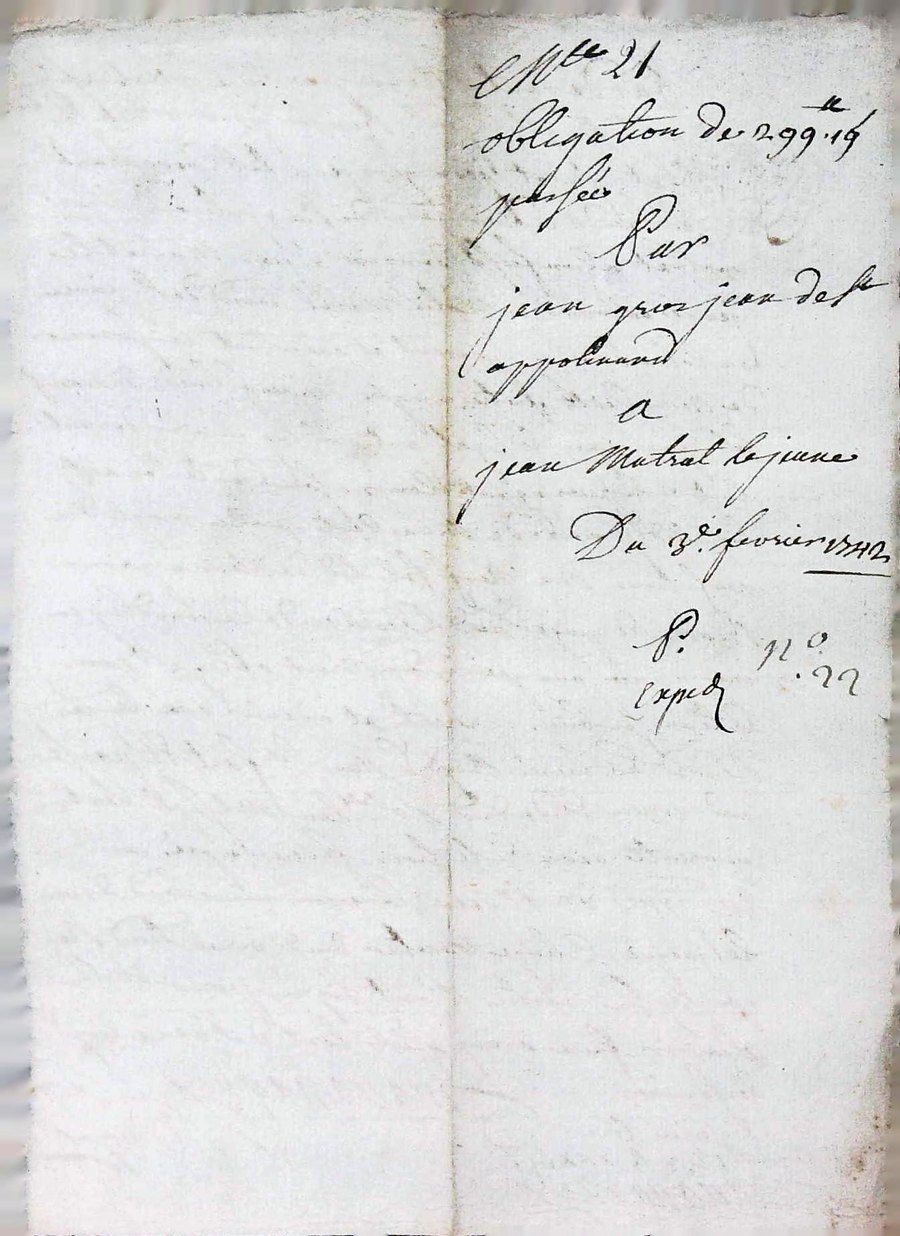 Cotte 21
obligation de 299.lt 19 s
passée
Par
jean grosjean de St
appolinard
a
jean Matrat le jeune
Du 3e. fevrier 1742
P.
exped
no
.22